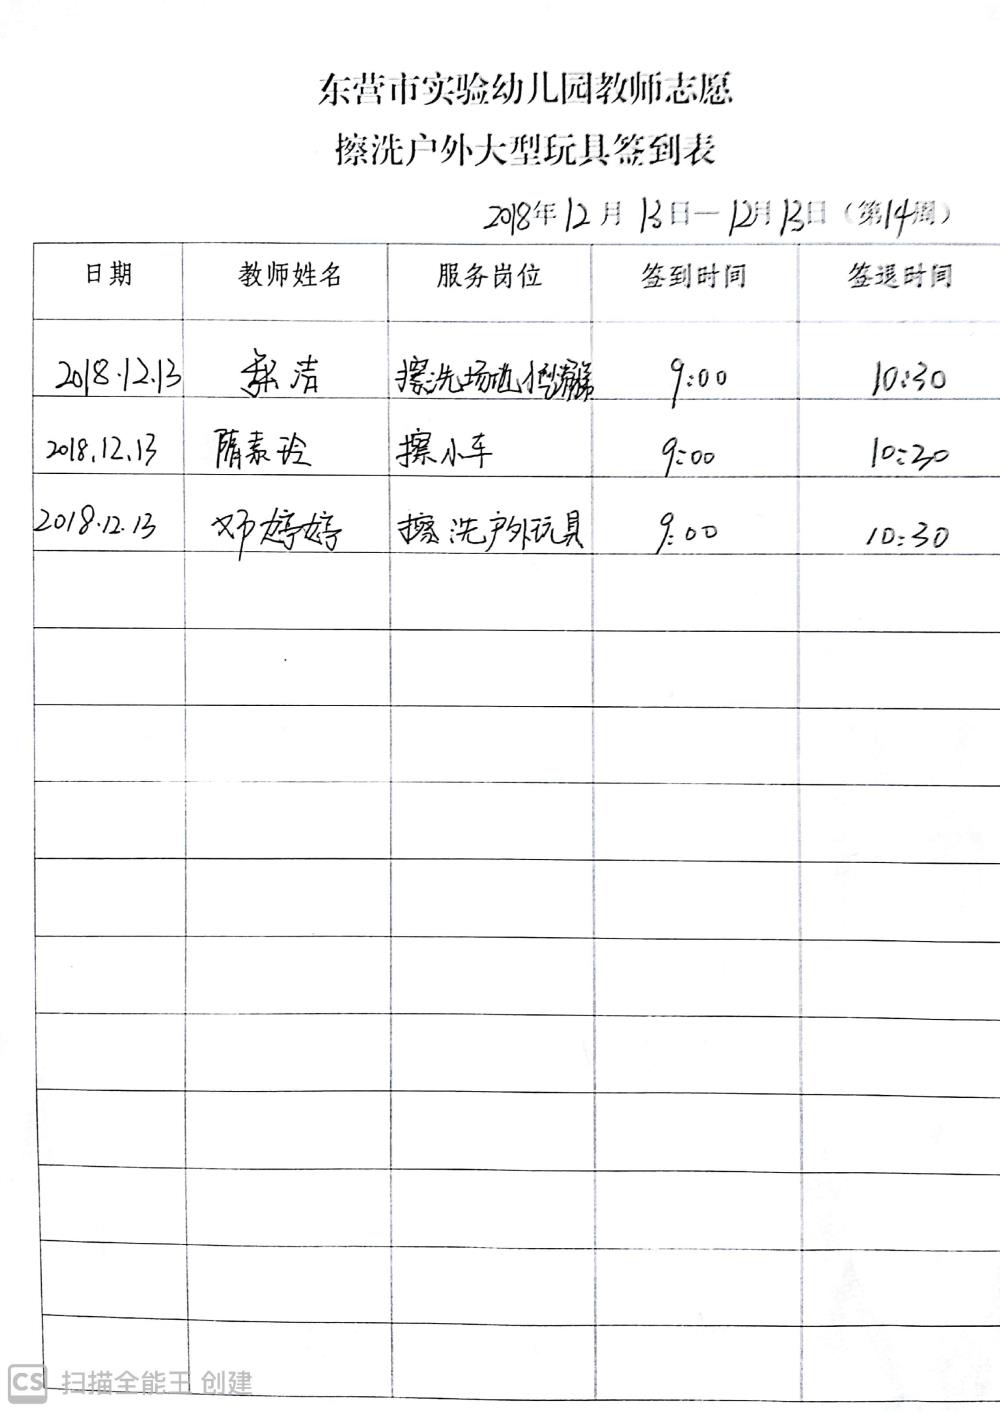 东营市实验幼儿园教师志愿
擦洗户外大型玩具签到表
2018年12月13日—12月13日（第14周）
日期 教师姓名 服务岗位 签到时间 签退时间
2018.12.13 洁 擦洗场地 9:00 10:30
2018.12.13 隋素玲 擦小车 9:00 10:30
2018.12.13 邓婷婷 擦洗户外玩具 9:00 10:30
CS 扫描全能王 创建